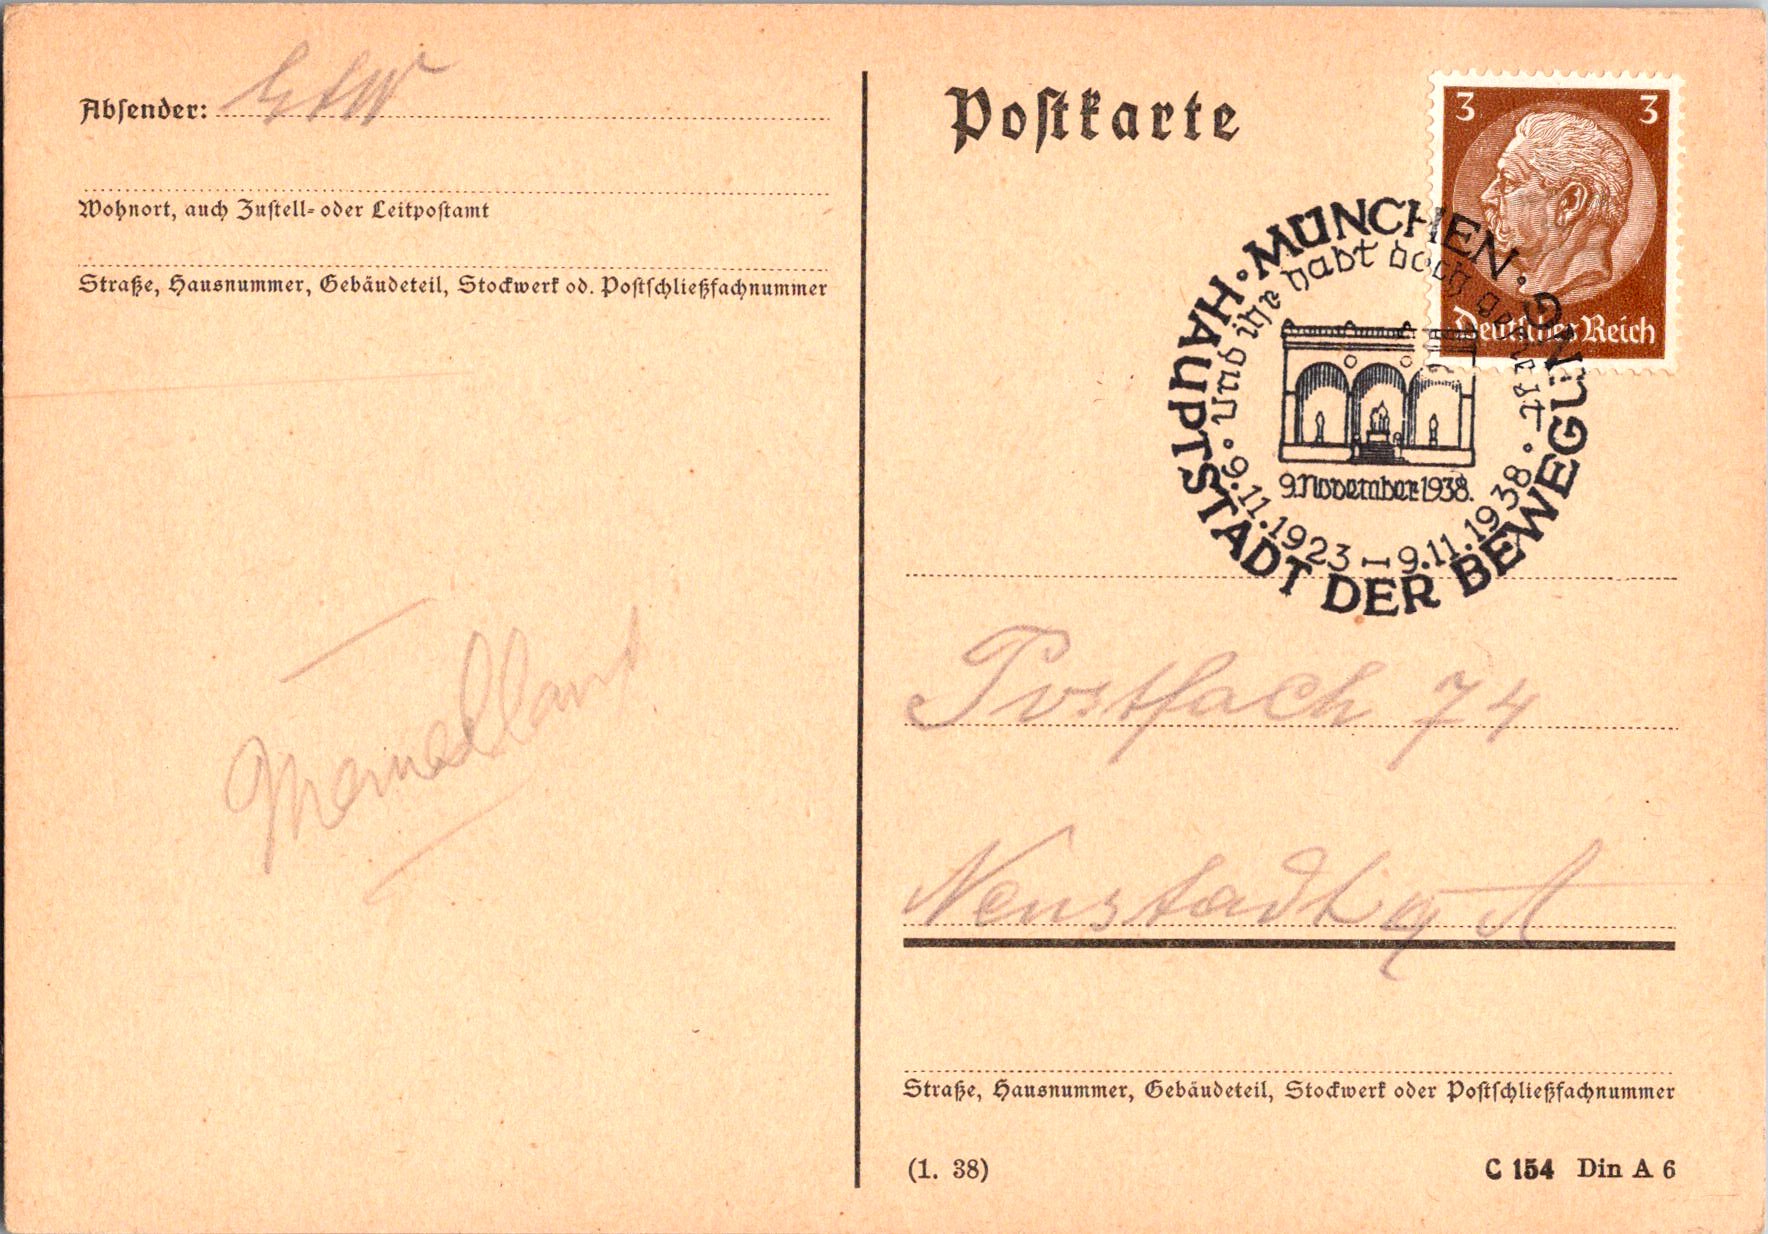 Absender:
Wohnort, auch Zustell- oder Leitpostamt
Straße, Hausnummer, Gebäudeteil, Stockwerk od. Postschließfachnummer
Memelland
Postkarte
3 3
Deutsches Reich
· MÜNCHEN · HAUPTSTADT DER BEWEGUNG
Und ihr habt doch gesiegt
9. November 1938.
9.11.1923 – 9.11.1938
Postfach 74
Neustadt
Straße, Hausnummer, Gebäudeteil, Stockwerk oder Postschließfachnummer
(1. 38)
C 154 Din A 6